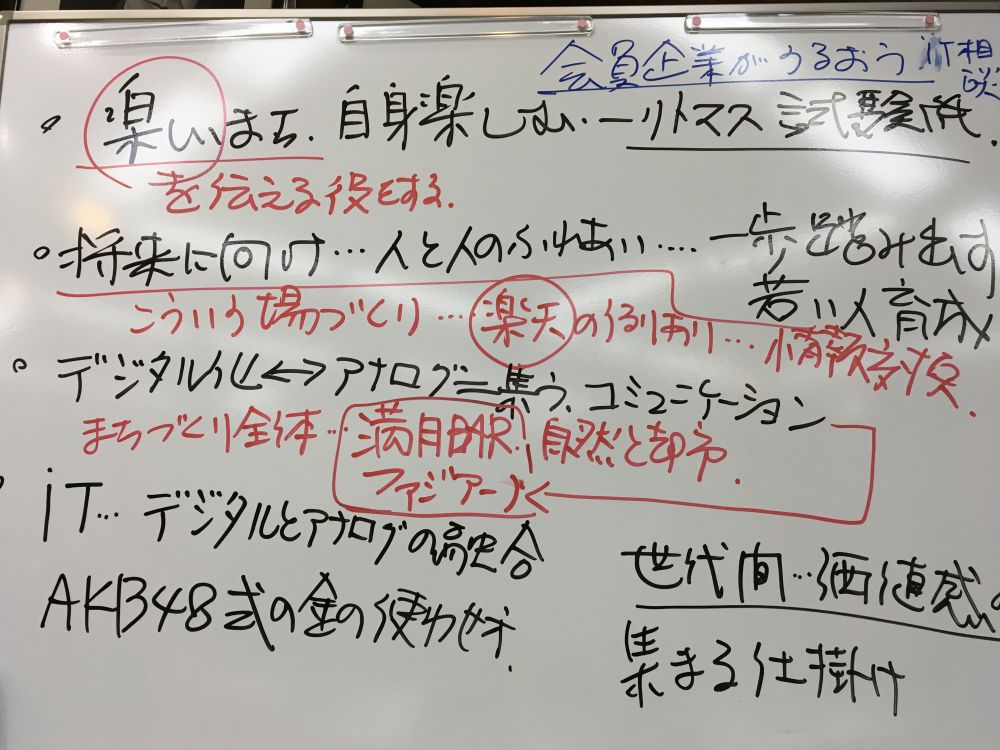 会員企業がうるおう IT相談
。楽しいまち. 自身楽しむ. ーリトマス試験紙.
を伝える役をする.
。将来に向け… 人と人のふれあい…. 一歩踏み出す
若い人育成
こういう場づくり…. 楽天のうるおい… 情報交換.
。デジタル化↔アナログ＝集う. コミュニケーション
まちづくり全体… 満月BAR… 自然と都市.
ファジアーノ
iT… デジタルとアナログの融合
世代間…価値感の
AKB48式の金の使わせ方.
集まる仕掛け